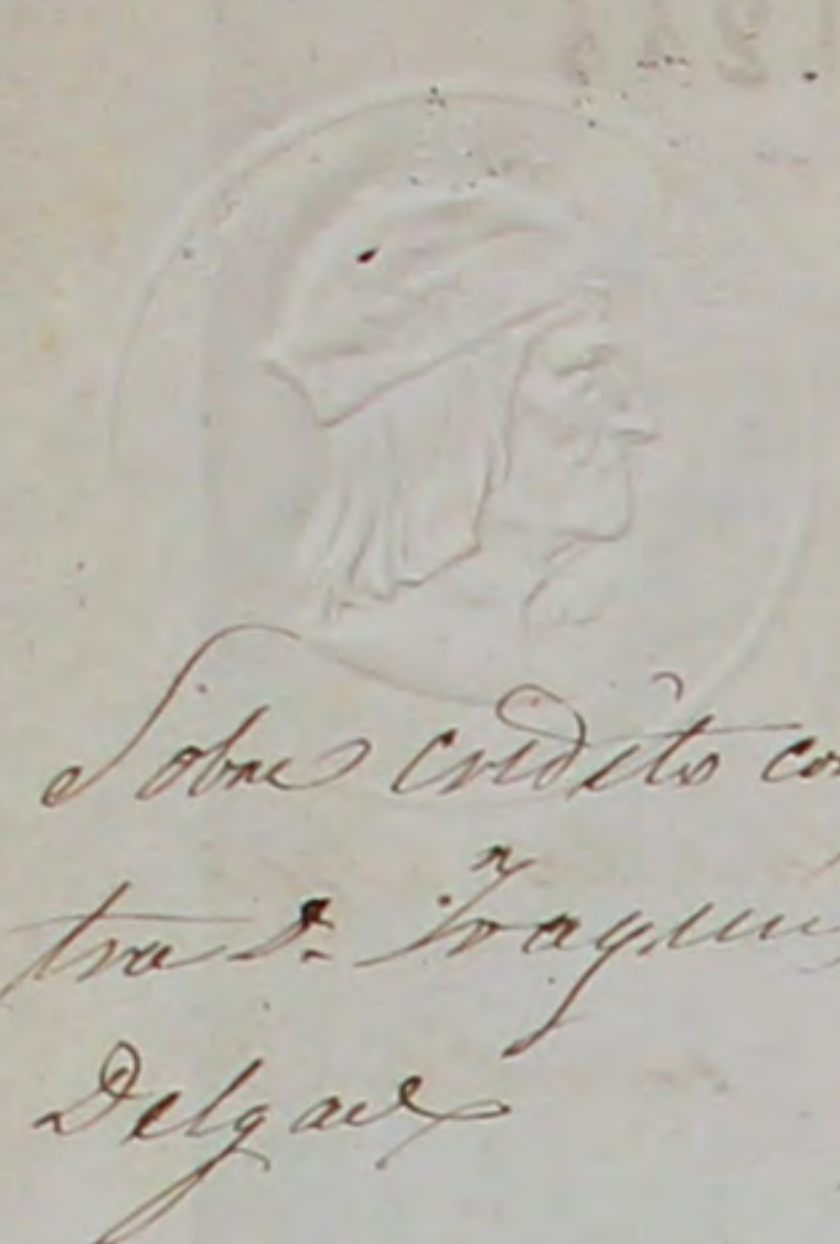 Sobre crédito co
tra Dn Joaquin
Delgado